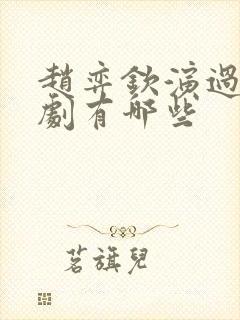 趙弈欽演過
劇有哪些
茗旗兒